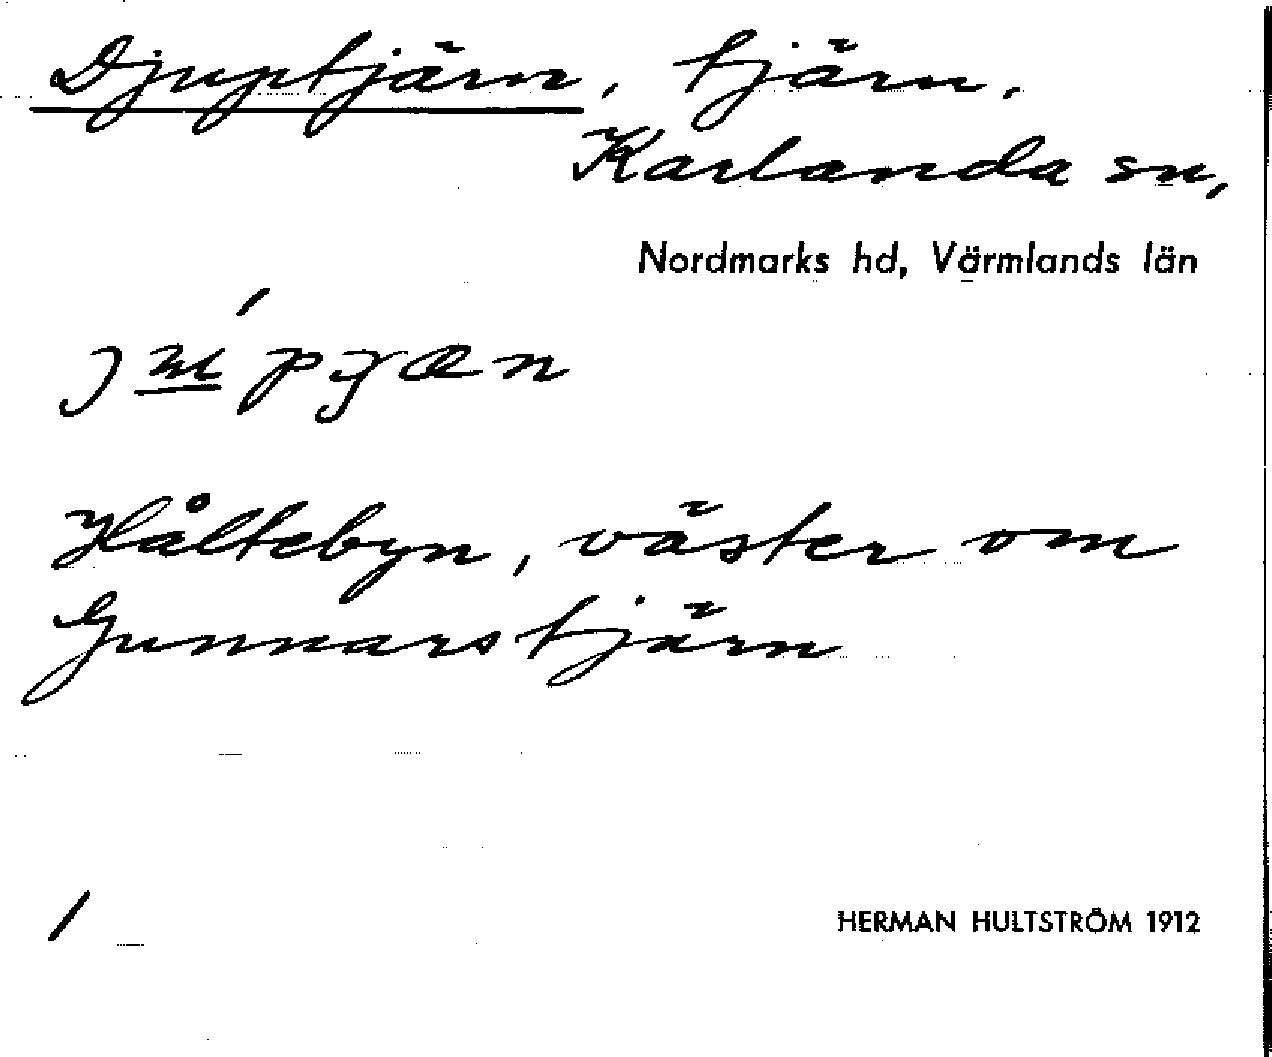 Djuptjärn, tjärn.
Karlanda sn,
Nordmarks hd, Värmlands län
Håltebyn, väster om
Gunnarstjärn
/
HERMAN HULTSTRÖM 1912